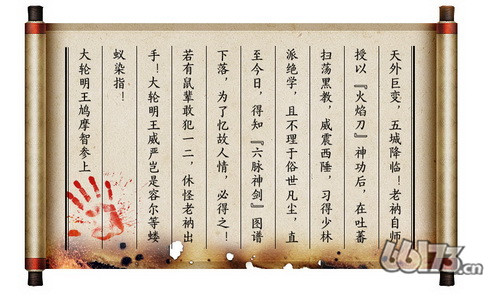 天外巨变，五城降临！老衲自师
授以『火焰刀』神功后，在吐蕃
扫荡黑教，威震西陲，习得少林
派绝学，且不理于俗世凡尘，直
至今日，得知『六脉神剑』图谱
下落，为了忆故人情，必得之！
若有鼠辈敢犯一二，休怪老衲出
手！大轮明王威严岂是容尔等蝼
蚁染指！
大轮明王鸠摩智参上
66173.cn